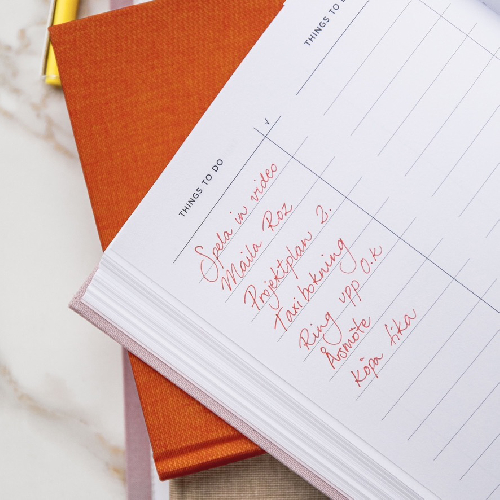 THINGS TO D
THINGS TO DO
✓
Spela in video
Maila Roz
Projektplan 2.
Taxibokning
Ring upp O.K
Årsmöte
Köpa fika